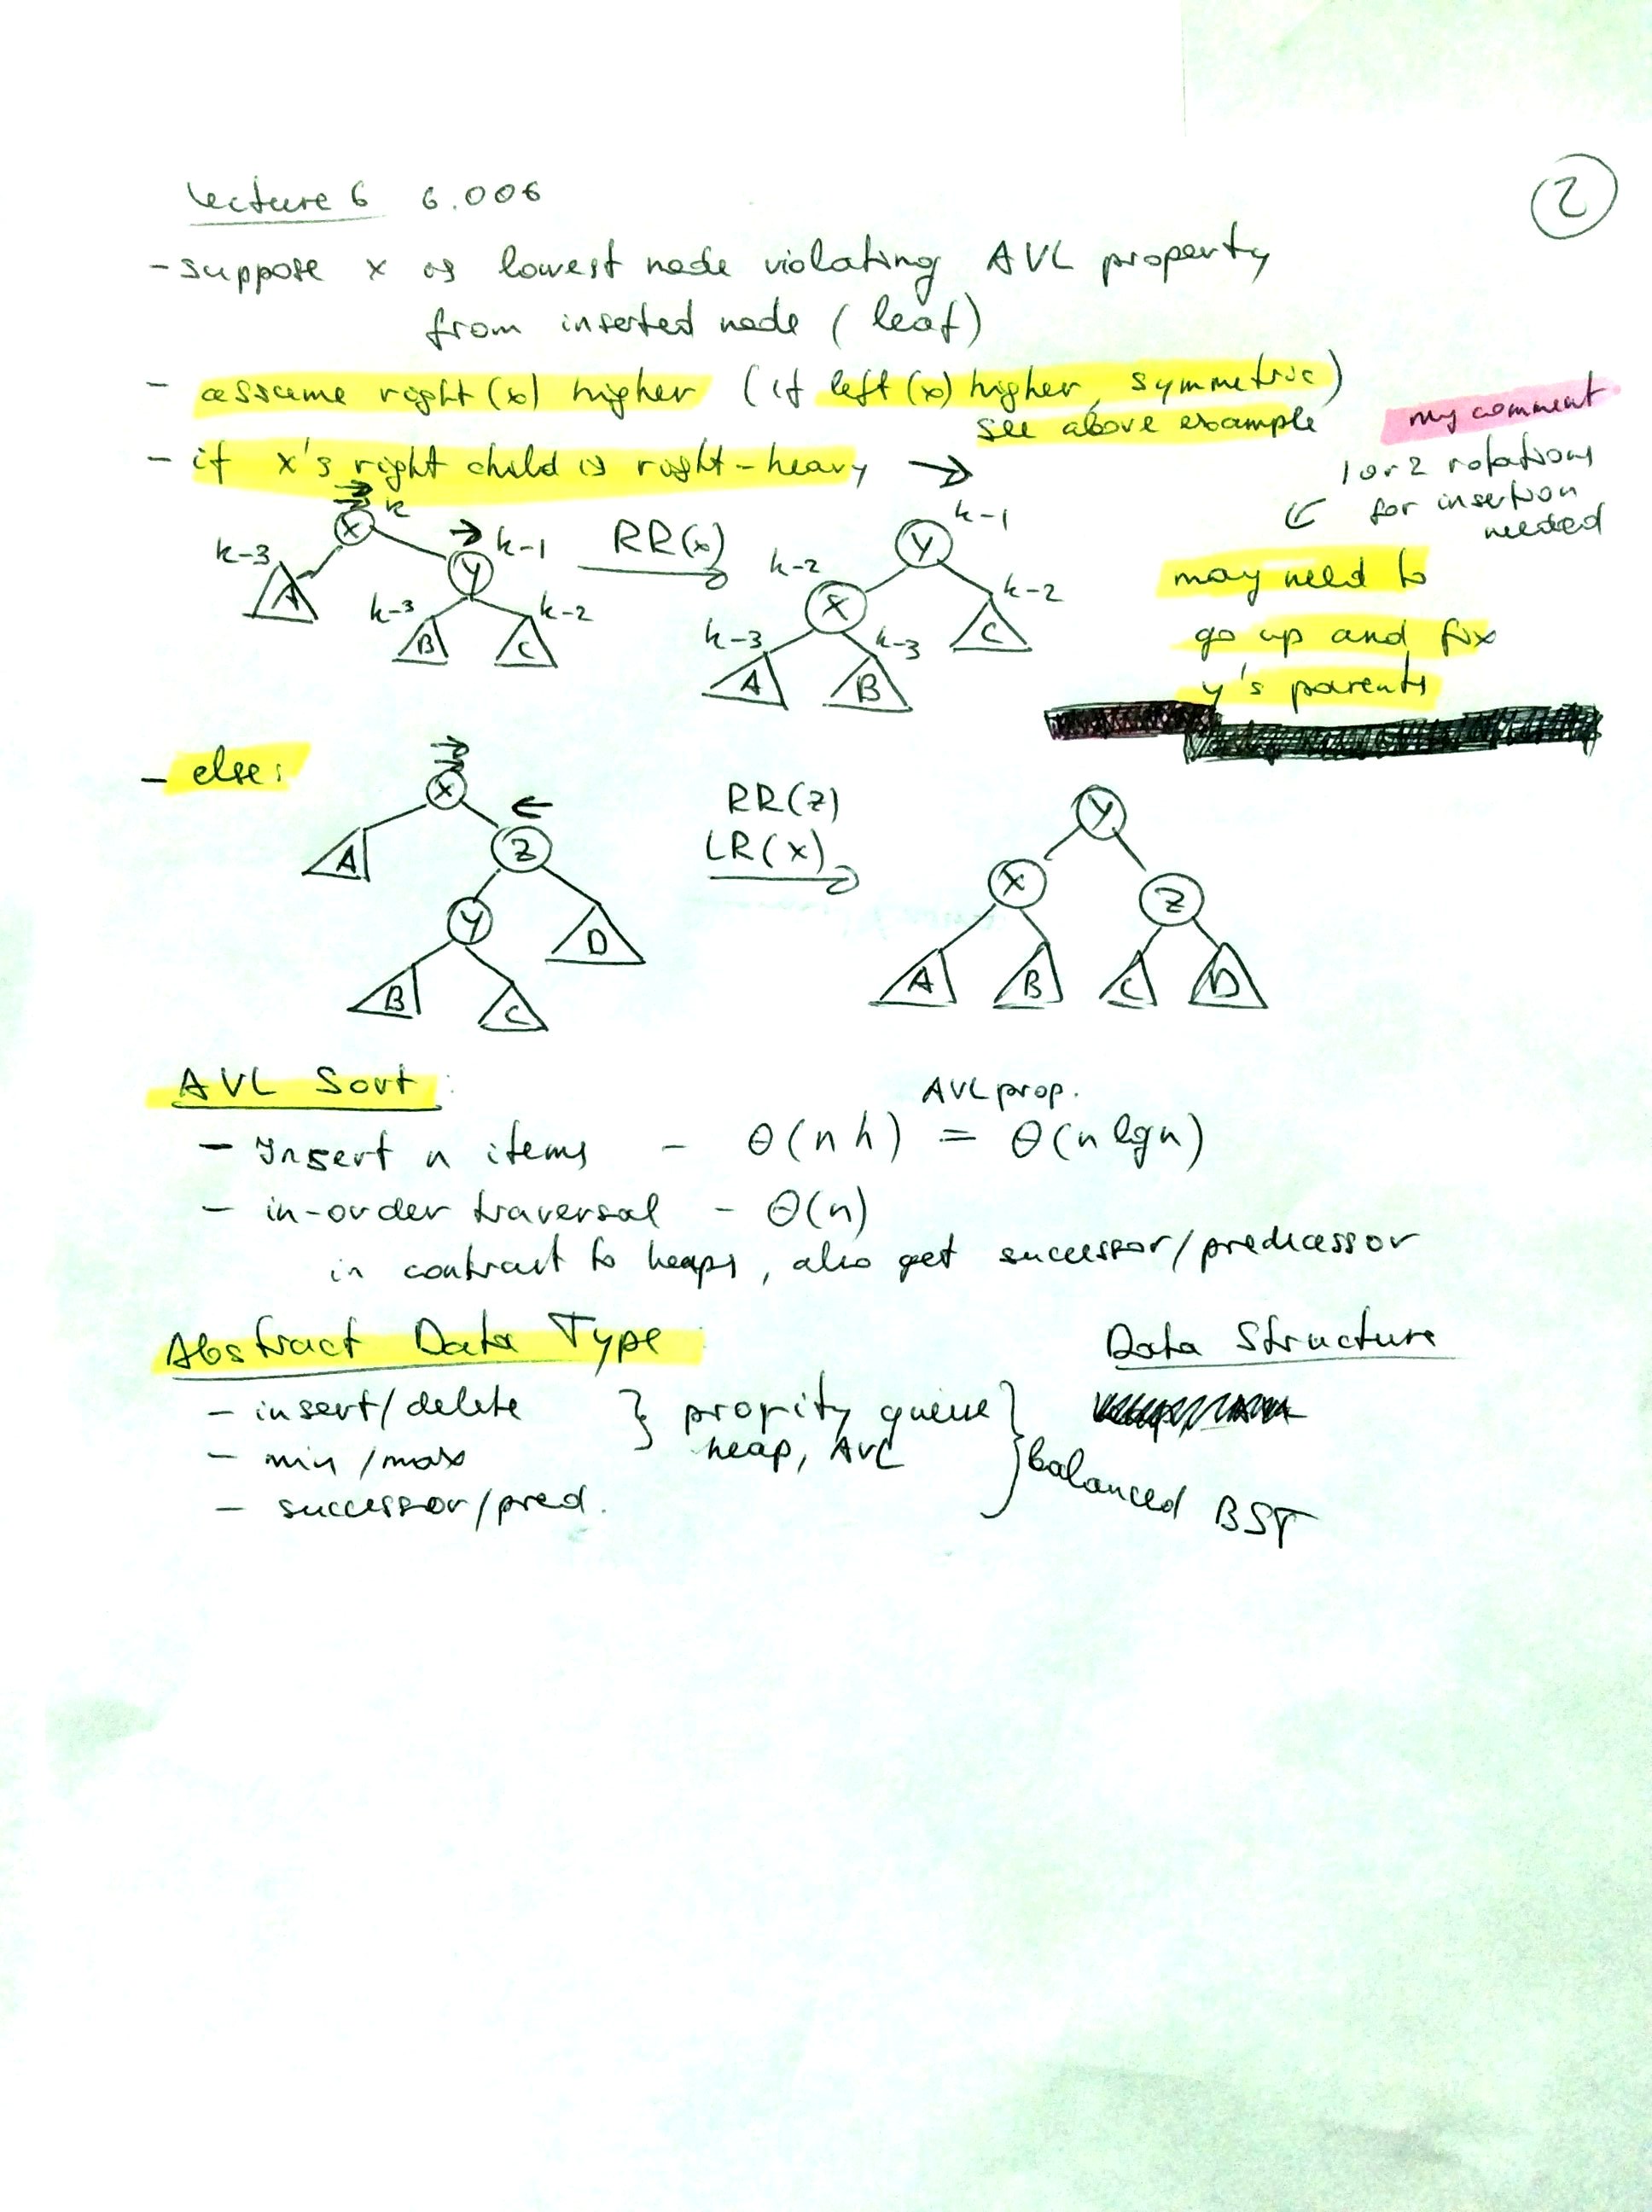 Lecture 6 6.006
2
- suppose x is lowest node violating AVL property
from inserted node (leaf)
- assume right(x) higher (if left(x) higher, symmetric)
see above example
my comment
1 or 2 rotations
for insertion
needed
- if x's right child is right-heavy →
x k
k-3 A
→ k-1
y
k-3 B
k-2 C
RR(x)
k-1
y
k-2
x
k-2
C
k-3 A
k-3 B
may need to
go up and fix
y's parents
- else:
x
← z
A
y
D
B
C
RR(z)
LR(x)
y
x
z
A
B
C
D
AVL Sort:
AVL prop.
- Insert n items - Θ(n h) = Θ(n lg n)
- in-order traversal - Θ(n)
in contrast to heaps, also get successor/predicessor
Abstract Data Type
Data Structure
- insert/delete
- min/max
- successor/pred.
} propity queue
heap, AVL
} balanced BST